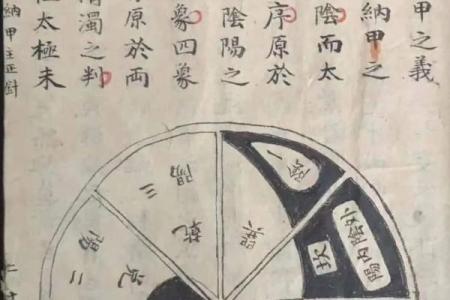 甲之義
納甲之
陰而太
序原於
陰陽之
象四象
原於兩
濁之判
太極未
納甲主正針
陰一
陽三
乾
陽二
兌
陽內陰外